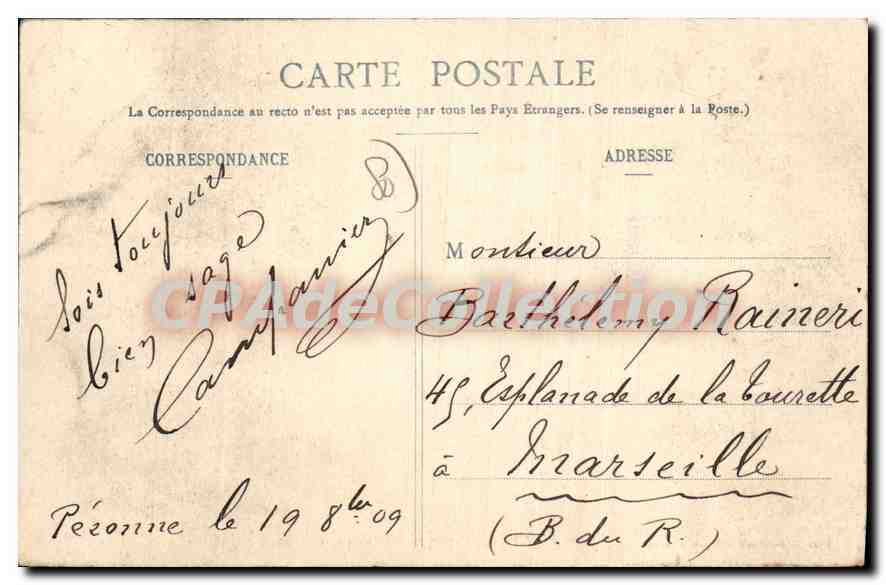 CARTE POSTALE
La Correspondance au recto n'est pas acceptée par tous les Pays Étrangers. (Se renseigner à la Poste.)
CORRESPONDANCE
80
Sois toujours
bien sage
Péronne le 19 8bre 09
ADRESSE
Monsieur
Barthelemy Raineri
45, Esplanade de la Tourette
à Marseille
(B. du R.)
CPAdeCollection